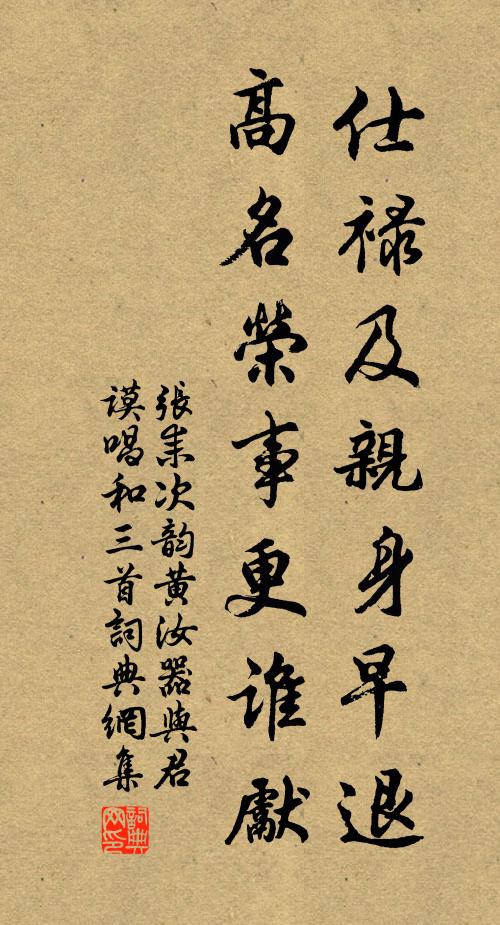 仕祿及親身早退
高名榮事更誰獻
張耒次韵黄汝器與君
謨唱和三首詞典網集
詞典网印